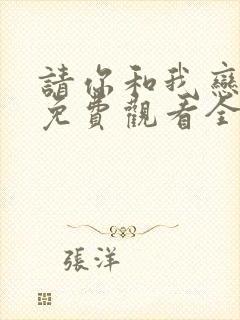 請你和我戀
免費觀看全
張洋